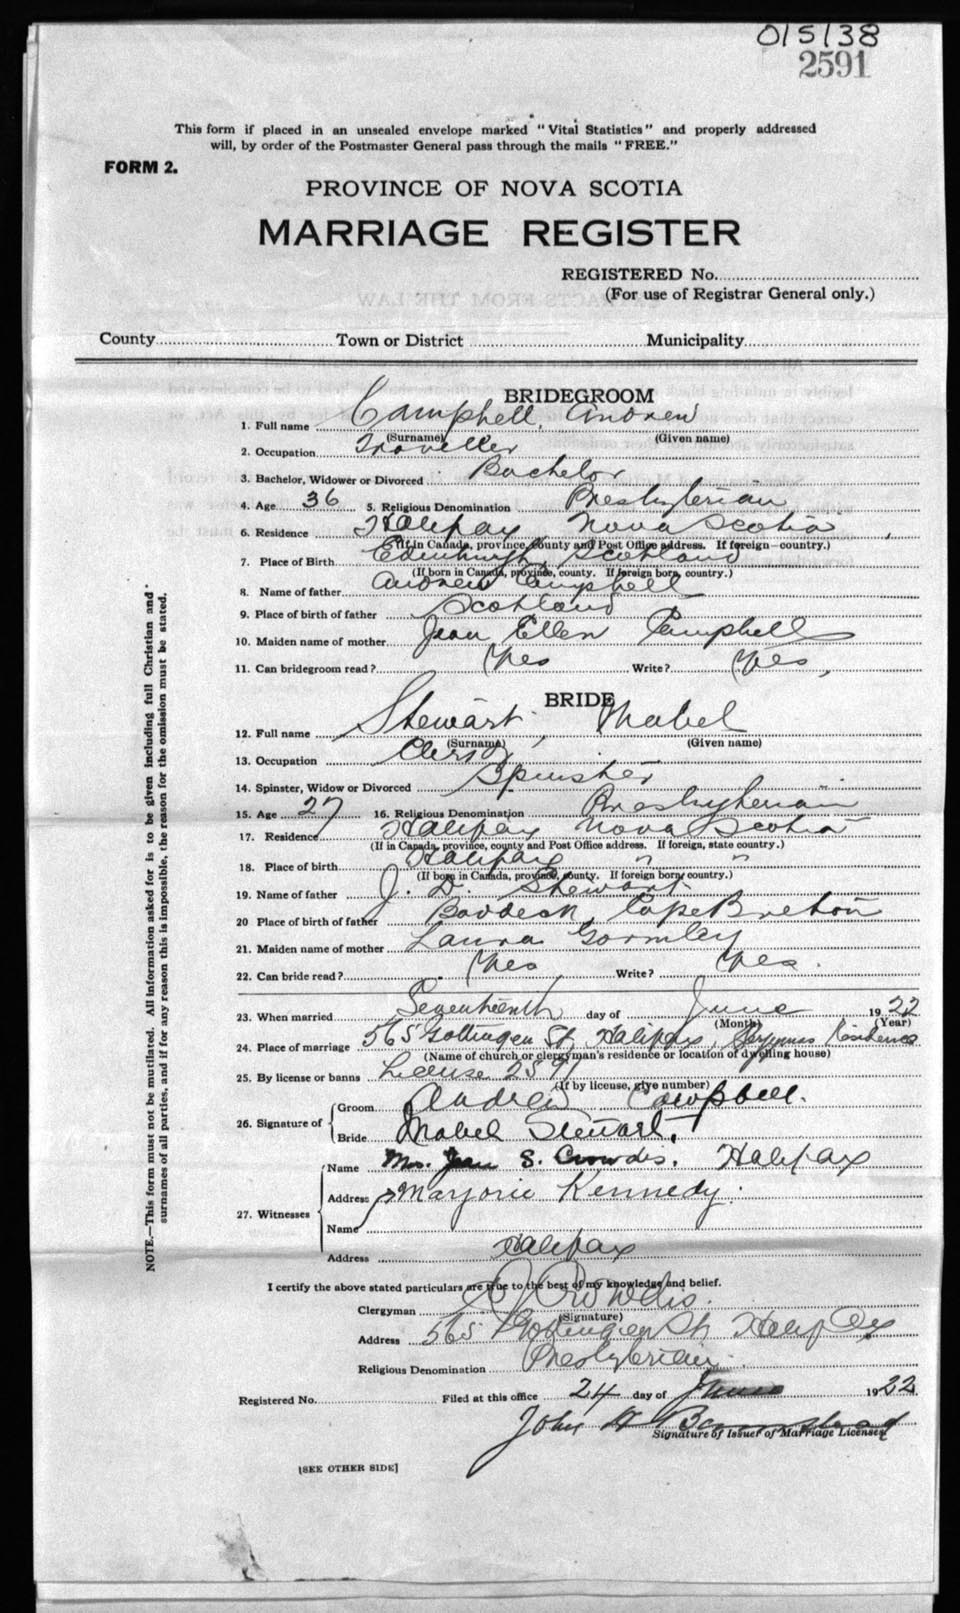 0/5/38
2591
This form if placed in an unsealed envelope marked "Vital Statistics" and properly addressed
will, by order of the Postmaster General pass through the mails "FREE."
FORM 2.
PROVINCE OF NOVA SCOTIA
MARRIAGE REGISTER
REGISTERED No.
(For use of Registrar General only.)
County Town or District Municipality
BRIDEGROOM
1. Full name Campbell, Andrew
(Surname) (Given name)
2. Occupation Traveller
3. Bachelor, Widower or Divorced Bachelor
4. Age 36 5. Religious Denomination Presbyterian
6. Residence Halifax Nova Scotia,
(If in Canada, province, county and Post Office address. If foreign—country.)
7. Place of Birth Edinburgh, Scotland
(If born in Canada, province, county. If foreign born, country.)
8. Name of father Andrew Campbell
9. Place of birth of father Scotland
10. Maiden name of mother Jean Ellen Campbell
11. Can bridegroom read? Yes Write? Yes,
BRIDE
12. Full name Stewart, Mabel
(Surname) (Given name)
13. Occupation Clerk
14. Spinster, Widow or Divorced Spinster
15. Age 27 16. Religious Denomination Presbyterian
17. Residence Halifax Nova Scotia
(If in Canada, province, county and Post Office address. If foreign, state country.)
18. Place of birth Halifax " "
(If born in Canada, province, county. If foreign born, country.)
19. Name of father J. D. Stewart.
20 Place of birth of father Baddeck, Cape Breton
21. Maiden name of mother Laura Gormley
22. Can bride read? Yes, Write? Yes.
23. When married Seventeenth day of June 1922
(Month) (Year)
24. Place of marriage 565 Gottingen St, Halifax, Residence
(Name of church or clergyman's residence or location of dwelling house)
25. By license or banns License 2591
(If by license, give number)
26. Signature of Groom Andrew Campbell.
Bride Mabel Stewart.
27. Witnesses Name Mrs. Jean S. Crowdis, Halifax
Address Marjorie Kennedy.
Name
Address Halifax
I certify the above stated particulars are true to the best of my knowledge and belief.
Clergyman Crowdis.
(Signature)
Address 565 Gottingen St, Halifax
Religious Denomination Presbyterian
Registered No. Filed at this office 24 day of June 1922
John Barnstead
Signature of Issuer of Marriage Licenses
[SEE OTHER SIDE]
NOTE.—This form must not be mutilated. All information asked for is to be given including full Christian and
surnames of all parties, and if for any reason this is impossible, the reason for the omission must be stated.